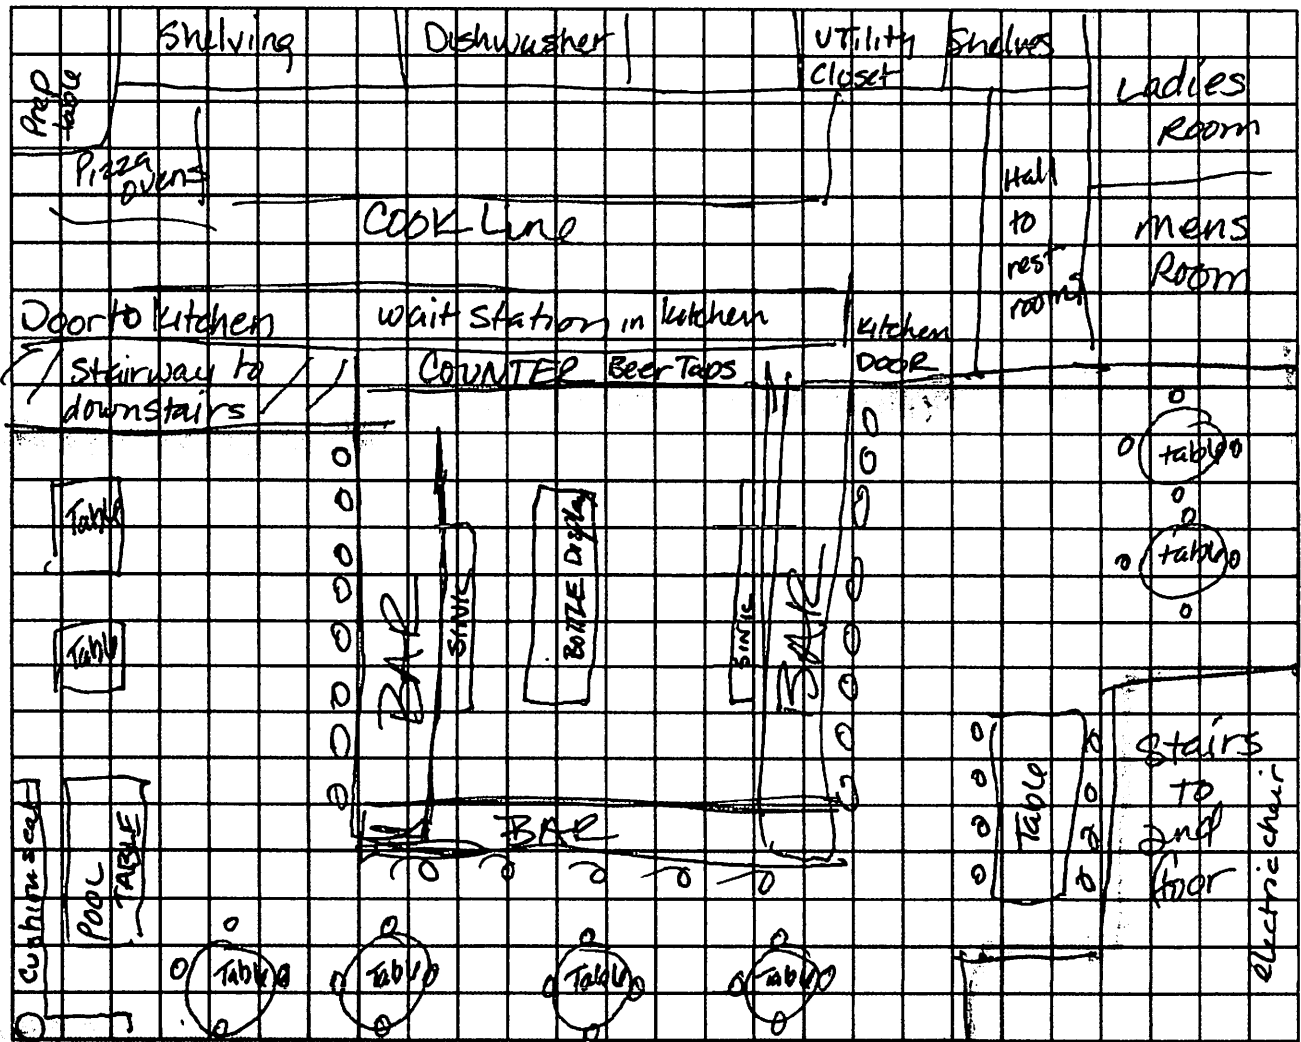 Shelving
Dishwasher
UTility
Closet
Shelves
Ladies
Room
Prep
table
Pizza
ovens
Hall
to
rest
rooms
mens
Room
Cook Line
Door to kitchen
wait station in kitchen
kitchen
DOOR
Stairway to
downstairs
COUNTER Beer Taps
table
table
Table
Table
BAR
SINK
BOTTLE Display
SINK
BAR
BAR
Table
Stairs
to
2nd
floor
electric chair
Cushion seat
POOL
TABLE
Table
Table
Table
Table